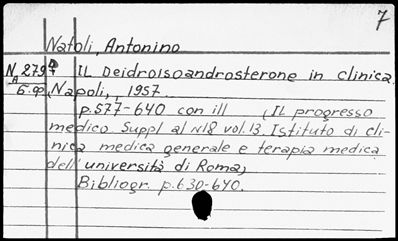 7
Natoli, Antonino
IL Deidroisoandrosterone in clinica.
Napoli, 1957.
p.577-640 con ill (IL progresso
medico Suppl al N18 vol.13. Istituto di cli-
nica medica generale e terapia medica
dell'università di Roma)
Bibliogr. p.630-640.